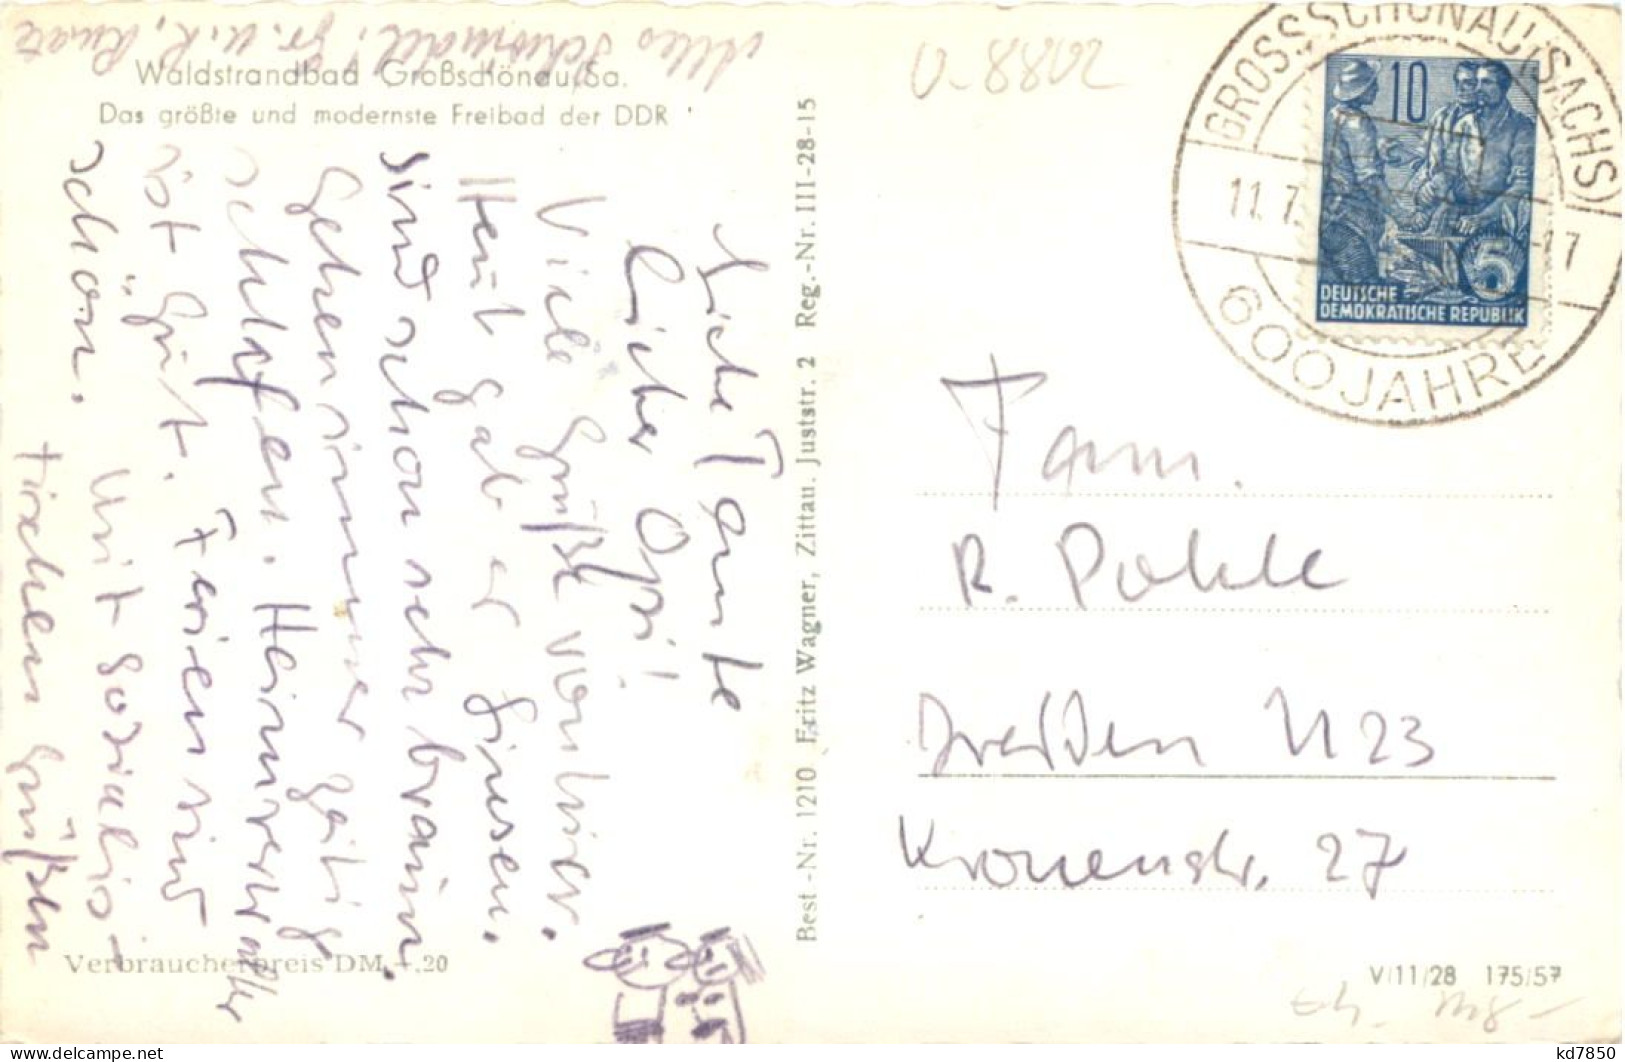 Waldstrandbad Großschönau/Sa.
Das größte und modernste Freibad der DDR
Liebe Tante
lieber Opi!
Viele Grüße von hier.
Heut gab er Linsen.
Sind schon sehr braun.
Gehen immer zeitig
schlafen. Heimverwalter
ist gut. Ferien sind
schön. Mit sozialis-
tischen Grüßen
Verbraucherpreis DM —,20
Best.-Nr. 1210 Fritz Wagner, Zittau, Juststr. 2 Reg.-Nr. III-28-15
2088-0
GROSSSCHÖNAU (SACHS)
11.7.
-17
600 JAHRE
10
5
DEUTSCHE
DEMOKRATISCHE REPUBLIK
Fam.
R. Pohle
Dresden N 23
Kronenstr. 27
V/11/28 175/57
kd7850